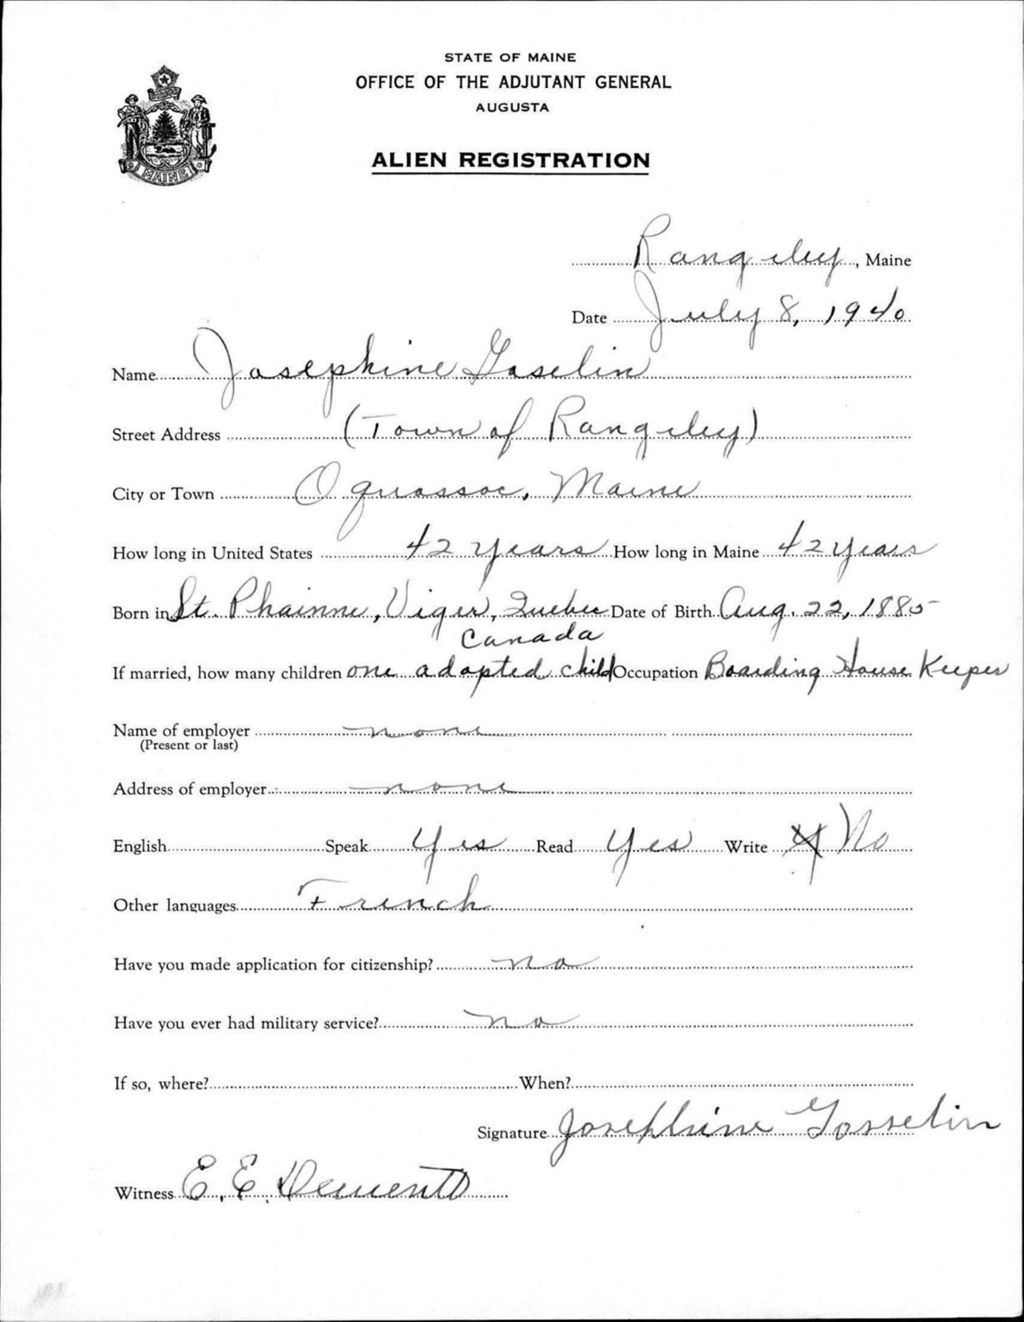 STATE OF MAINE
OFFICE OF THE ADJUTANT GENERAL
AUGUSTA
ALIEN REGISTRATION
MAINE
Rangeley, Maine
Date July 8, 1940
Name Josephine Goselin
Street Address (Town of Rangeley)
City or Town Oquossoc, Maine
How long in United States 42 years How long in Maine 42 years
Born in St. Phainne, Viger, Quebec Date of Birth Aug. 22, 1885
Canada
If married, how many children one adopted child Occupation Boarding House Keeper
Name of employer none
(Present or last)
Address of employer none
English Speak Yes Read Yes Write No
Other languages French
Have you made application for citizenship? no
Have you ever had military service? no
If so, where? When?
Signature Josephine Gosselin
Witness E. E. Demento